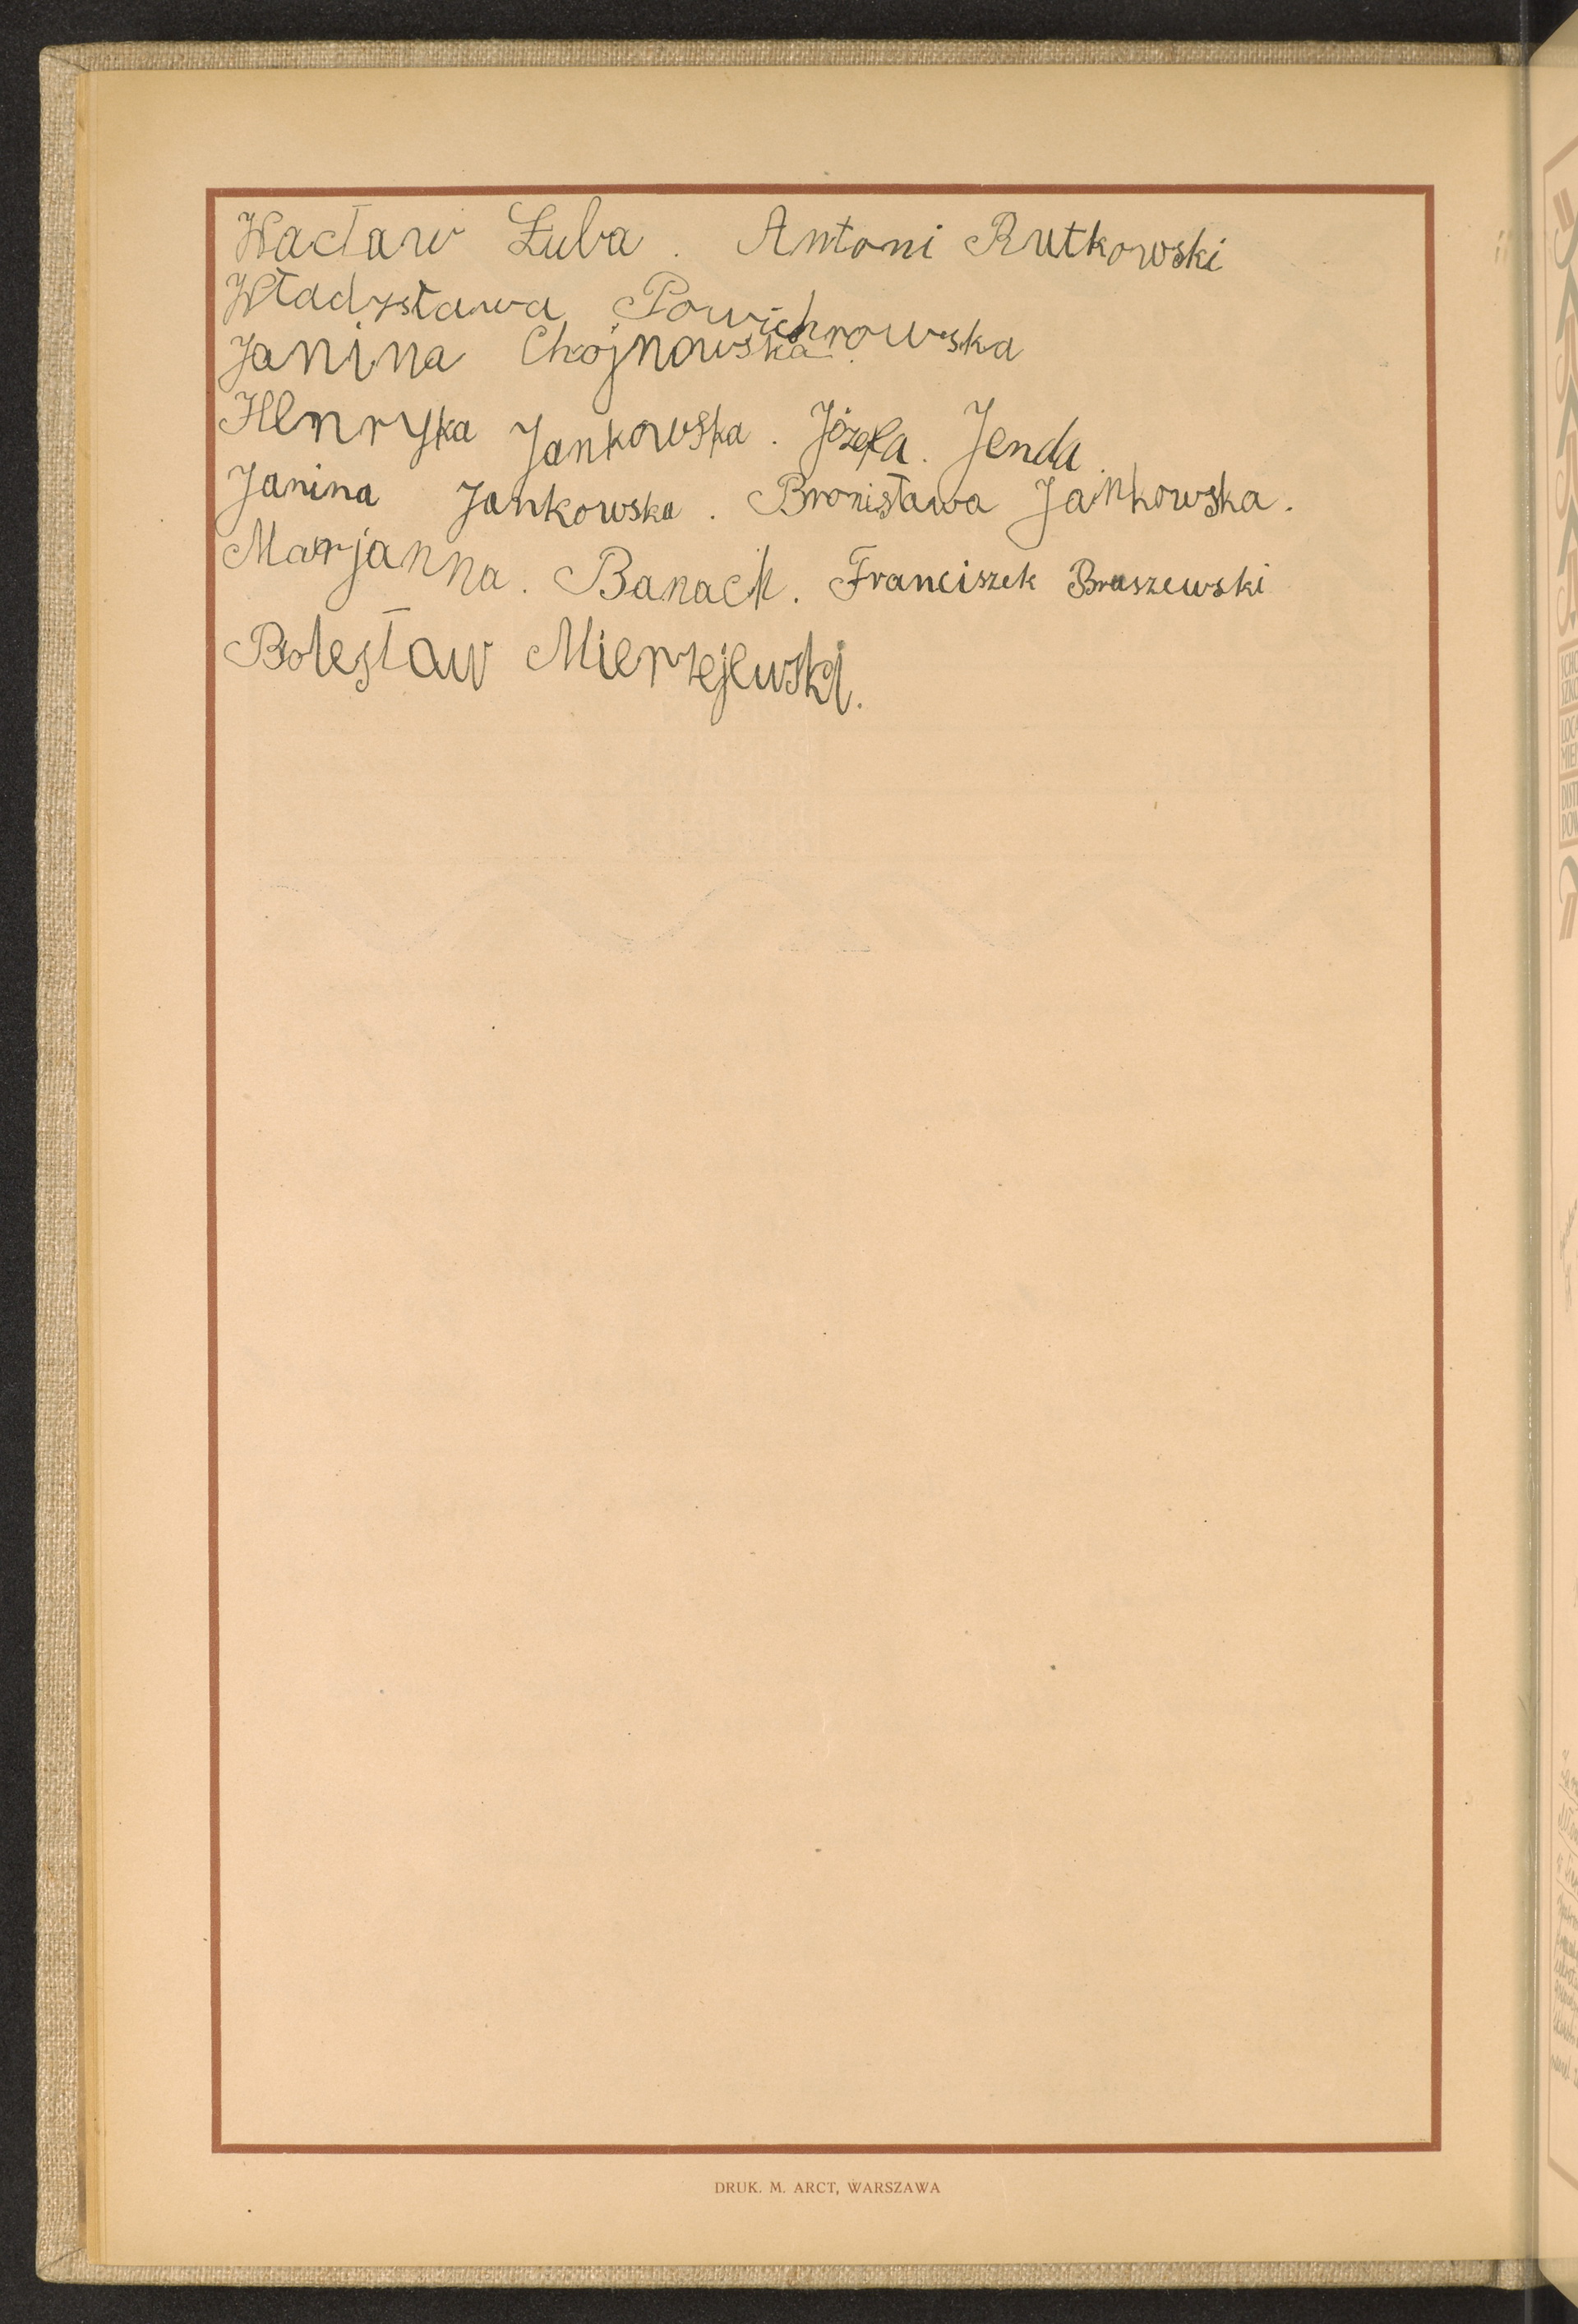 Wacław Łuba. Antoni Rutkowski
Władysława Powichrowska
Janina Chojnowska.
Henryka Jankowska. Józefa. Jenda.
Janina Jankowska. Bronisława Jankowska.
Marjanna. Banach. Franciszek Bruszewski
Bolesław Mierzejewski.
DRUK. M. ARCT, WARSZAWA